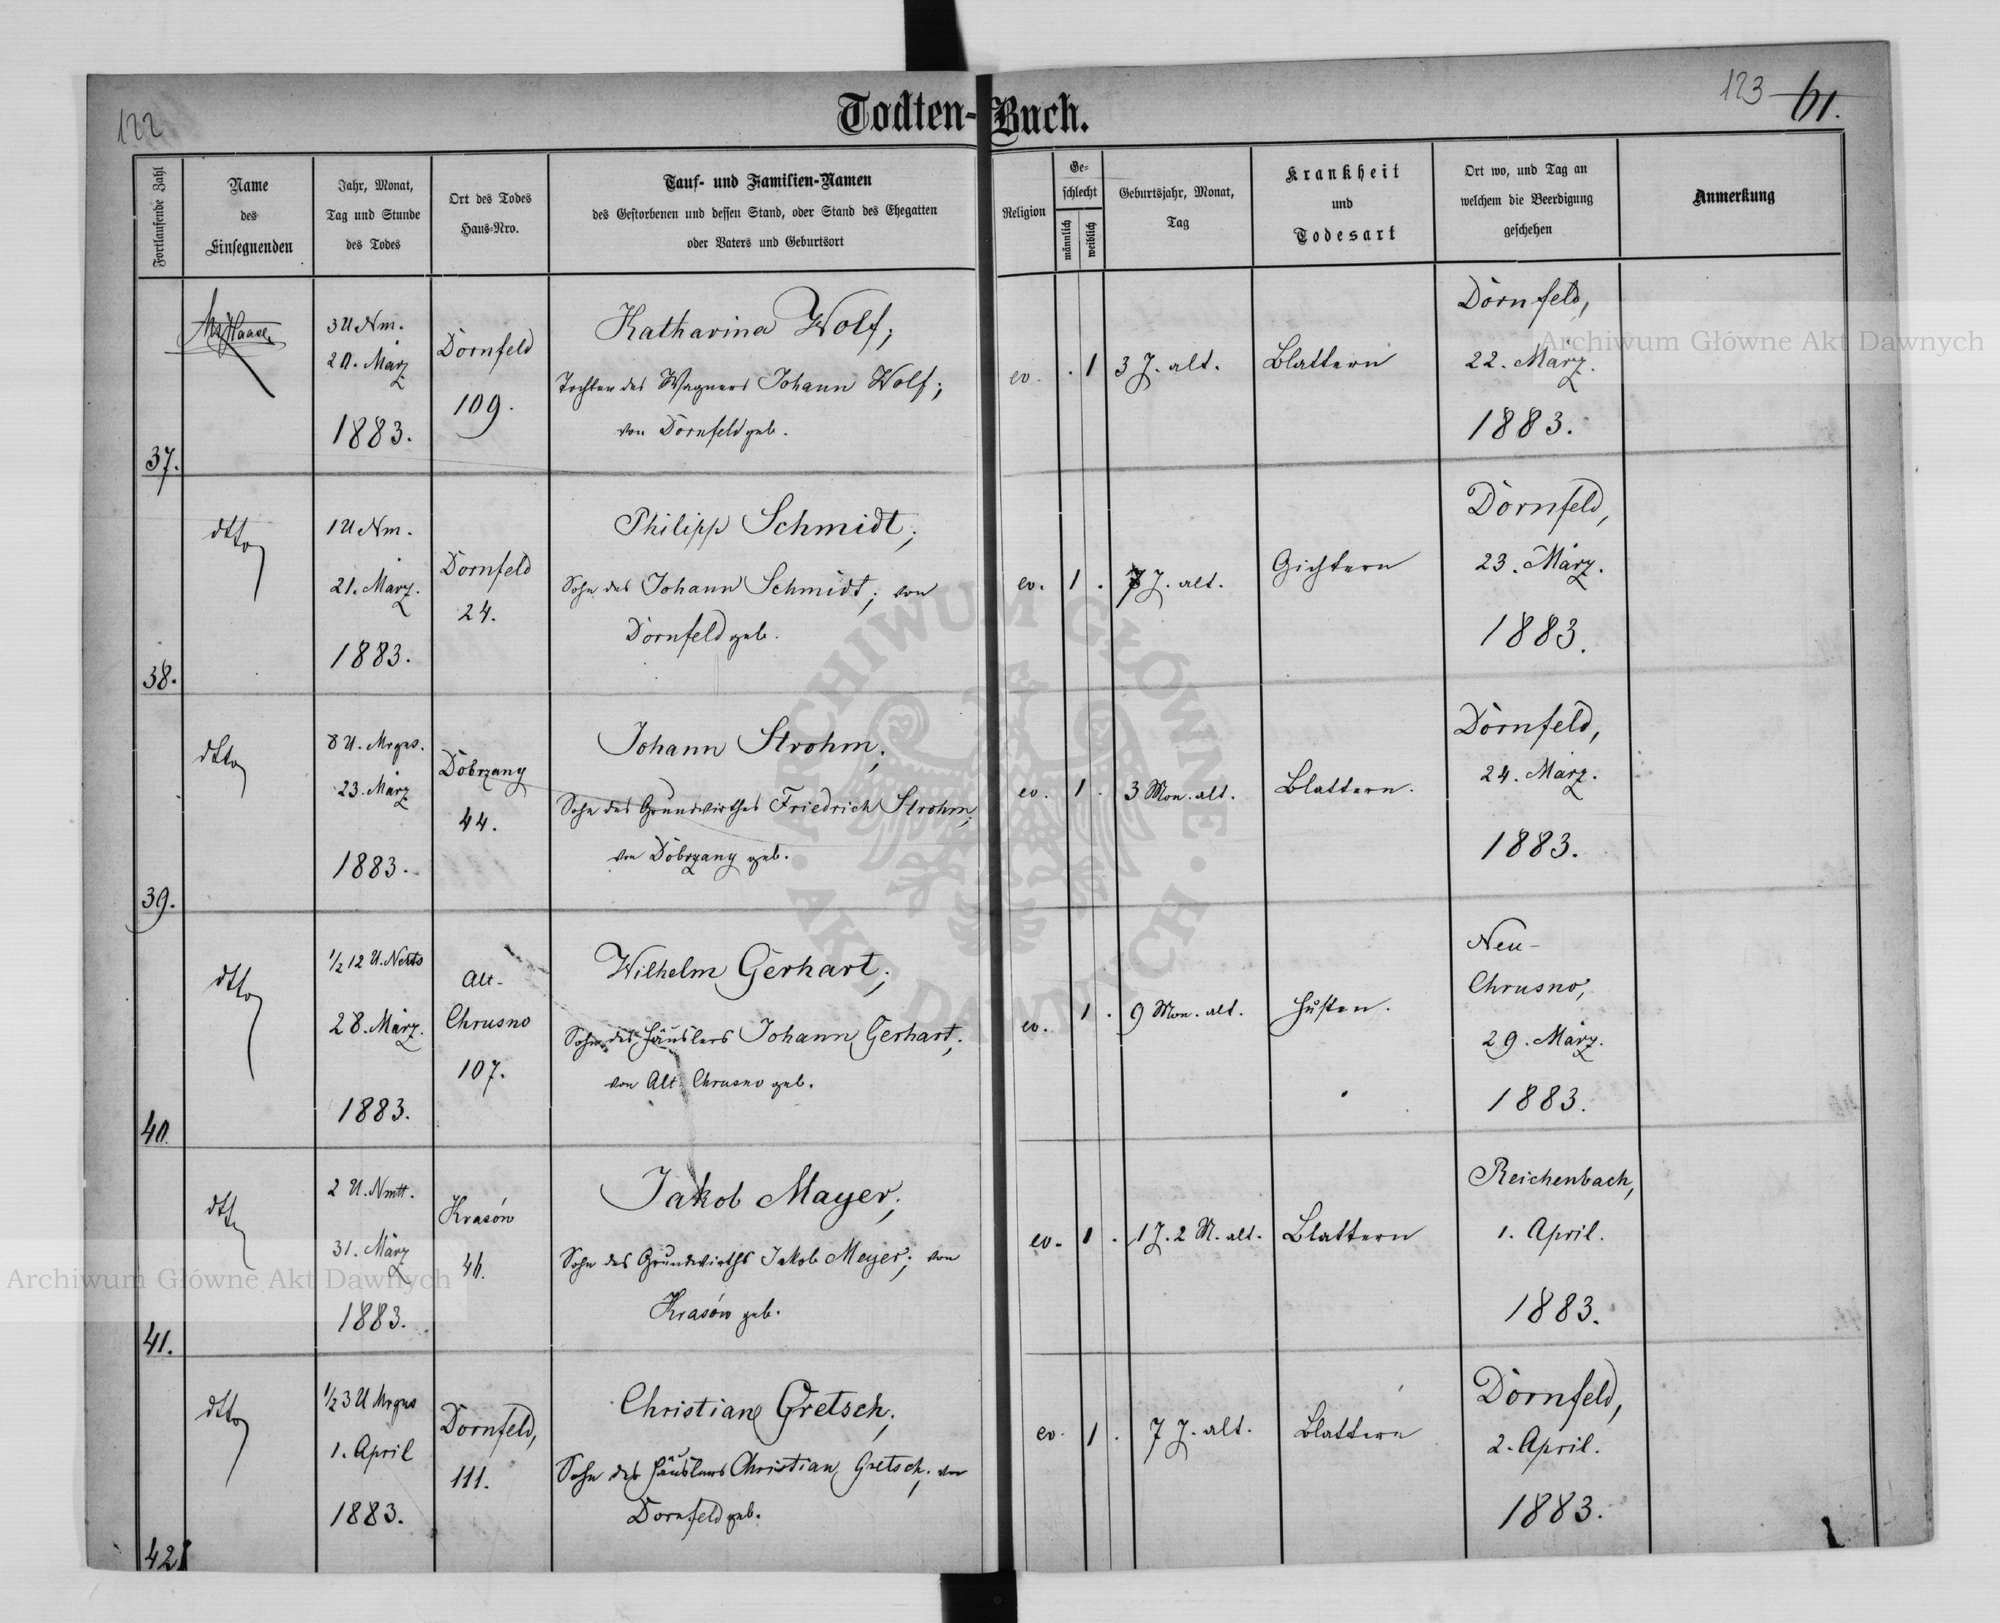 122
123 61.
Todten-Buch.
Fortlaufende Zahl
Name
des
Einsegnenden
Jahr, Monat,
Tag und Stunde
des Todes
Ort des Todes
Haus-Nro.
Tauf- und Familien-Namen
des Gestorbenen und dessen Stand, oder Stand des Ehegatten
oder Vaters und Geburtsort
Religion
Ge-
schlecht
männlich
weiblich
Geburtsjahr, Monat,
Tag
Krankheit
und
Todesart
Ort wo, und Tag an
welchem die Beerdigung
geschehen
Anmerkung
37.
Haase
3 U Nm.
20. März
1883.
Dornfeld
109.
Katharina Wolf;
Tochter des Wagners Johann Wolf;
von Dornfeld geb.
ev.
. 1
3 J. alt.
Blattern
Dornfeld,
22. März.
1883.
38.
dtto
1 U Nm.
21. März.
1883.
Dornfeld
24.
Philipp Schmidt;
Sohn des Johann Schmidt; von
Dornfeld geb.
ev.
1 .
7 J. alt.
Gichtern
Dornfeld,
23. März.
1883.
39.
dtto
8 U. Mrgns.
23. März
1883.
Dobrzany
44.
Johann Strohm;
Sohn des Grundwirthes Friedrich Strohm;
von Dobrzany geb.
ev.
1 .
3 Mon. alt.
Blattern.
Dornfeld,
24. März.
1883.
40.
dtto
1/2 12 U. Nchts
28. März.
1883.
Alt-
Chrusno
107.
Wilhelm Gerhart;
Sohn des Häuslers Johann Gerhart;
von Alt Chrusno geb.
ev.
1 .
9 Mon. alt.
Husten.
Neu-
Chrusno,
29. März.
1883.
41.
dtto
2 U. Nmtt.
31. März
1883.
Krasów
46.
Jakob Mayer;
Sohn des Grundwirths Jakob Meyer; von
Krasów geb.
ev.
1 .
1 J. 2 M. alt.
Blattern
Reichenbach,
1. April.
1883.
42
dtto
1/2 3 U Mrgns
1. April
1883.
Dornfeld,
111.
Christian Gretsch;
Sohn des Häuslers Christian Gretsch; von
Dornfeld geb.
ev.
1 .
7 J. alt.
Blattern
Dornfeld,
2. April.
1883.
Archiwum Główne Akt Dawnych
Archiwum Główne Akt Dawnych
ARCHIWUM GŁÓWNE · AKT DAWNYCH ·